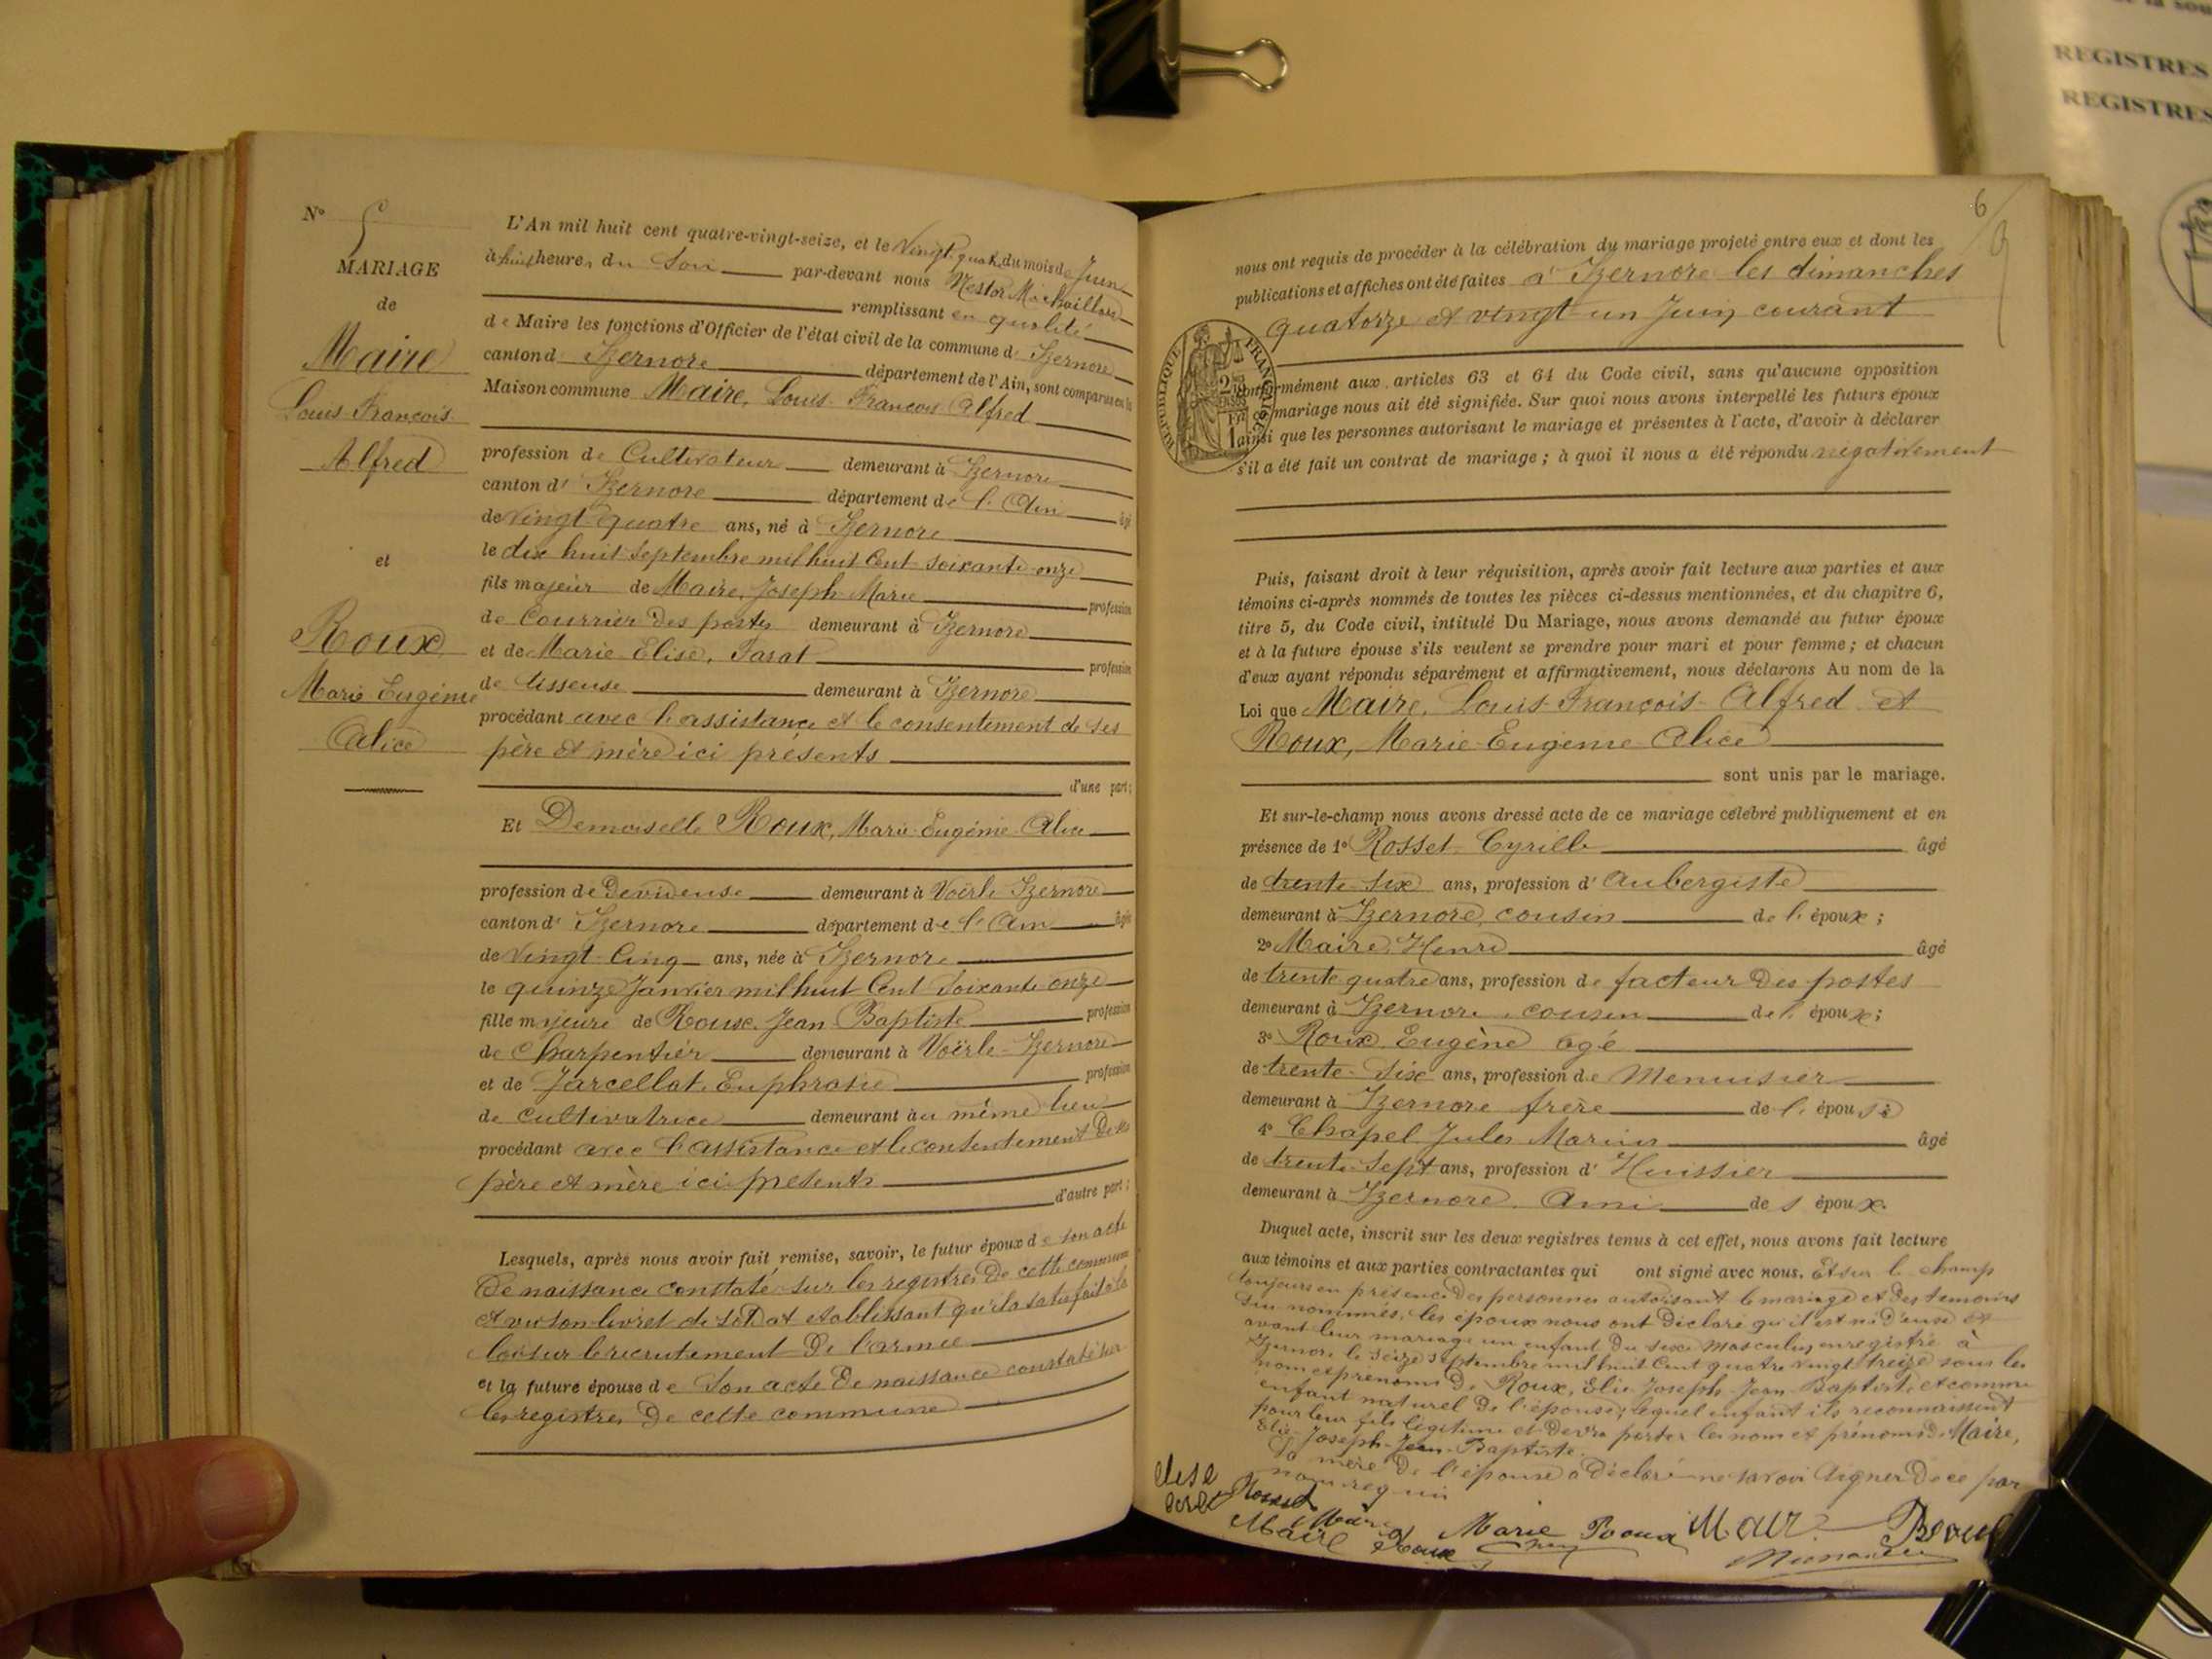 N° 5
MARIAGE
de
Maire
Louis François
Alfred
et
Roux
Marie Eugénie
Alice
L'An mil huit cent quatre-vingt-seize, et le Vingt quatre du mois de Juin
à huit heures du Soir par-devant nous Nestor
remplissant en qualité
de Maire les fonctions d'Officier de l'état civil de la commune d' Izernore
canton d' Izernore département de l'Ain, sont comparus en la
Maison commune Maire, Louis François Alfred
profession de Cultivateur demeurant à Izernore
canton d' Izernore département de l'Ain âgé
de Vingt quatre ans, né à Izernore
le dix huit Septembre mil huit Cent Soixante onze
fils majeur de Maire, Joseph Marie profession
de Courrier des postes demeurant à Izernore
et de Marie Elise, profession
de tisseuse demeurant à Izernore
procédant avec l'assistance et le consentement de ses
père et mère ici présents
d'une part;
Et Demoiselle Roux, Marie Eugénie Alice
profession de Devideuse demeurant à Voërle Izernore
canton d' Izernore département de l'Ain âgée
de Vingt Cinq ans, née à Izernore
le quinze Janvier mil huit Cent Soixante onze
fille majeure de Roux, Jean Baptiste profession
de Charpentier demeurant à Voërle Izernore
et de Jarcellat, Euphrasie profession
de cultivatrice demeurant au même lieu
procédant avec l'assistance et le consentement de ses
père et mère ici présents
d'autre part;
Lesquels, après nous avoir fait remise, savoir, le futur époux de son acte
de naissance constaté sur les registres de cette commune
et vu son livret de soldat établissant qu'il a satisfait à la
loi sur le recrutement de l'armée
et la future épouse de Son acte de naissance constaté sur
les registres de cette commune
6
nous ont requis de procéder à la célébration du mariage projeté entre eux et dont les
publications et affiches ont été faites à Izernore les dimanches
quatorze et vingt un Juin courant
RÉPUBLIQUE FRANÇAISE
conformément aux articles 63 et 64 du Code civil, sans qu'aucune opposition
mariage nous ait été signifiée. Sur quoi nous avons interpellé les futurs époux
ainsi que les personnes autorisant le mariage et présentes à l'acte, d'avoir à déclarer
s'il a été fait un contrat de mariage; à quoi il nous a été répondu négativement
Puis, faisant droit à leur réquisition, après avoir fait lecture aux parties et aux
témoins ci-après nommés de toutes les pièces ci-dessus mentionnées, et du chapitre 6,
titre 5, du Code civil, intitulé Du Mariage, nous avons demandé au futur époux
et à la future épouse s'ils veulent se prendre pour mari et pour femme; et chacun
d'eux ayant répondu séparément et affirmativement, nous déclarons Au nom de la
Loi que Maire, Louis François Alfred et
Roux, Marie Eugénie Alice
sont unis par le mariage.
Et sur-le-champ nous avons dressé acte de ce mariage célébré publiquement et en
présence de 1° Rosset Cyrille âgé
de trente six ans, profession d' Aubergiste
demeurant à Izernore, cousin de l'époux;
2° Maire, Henri âgé
de trente quatre ans, profession de facteur des postes
demeurant à Izernore, cousin de l'époux;
3° Roux Eugène agé
de trente Six ans, profession de Menuisier
demeurant à Izernore frère de l'épouse
4° Chapel Jules Marius âgé
de trente Sept ans, profession d' Huissier
demeurant à Izernore. Ami de s époux.
Duquel acte, inscrit sur les deux registres tenus à cet effet, nous avons fait lecture
aux témoins et aux parties contractantes qui ont signé avec nous. Et sur le champ
toujours en présence des personnes autorisant le mariage et des témoins
sus nommés, les époux nous ont déclaré qu'il est né d'eux
avant leur mariage un enfant du sexe masculin enregistré à
Izernore le Seize Septembre mil huit Cent quatre vingt treize sous les
nom et prénoms de Roux, Elie Joseph Jean Baptiste et comme
enfant naturel de l'épouse; lequel enfant ils reconnaissent
pour leur fils légitime et devra porter les nom et prénoms de Maire,
Elie Joseph Jean Baptiste.
La mère de l'épouse a déclaré ne savoir Signer de ce par
nous requis
elise
Rosset
Maire
Maire
Roux
Marie Roux